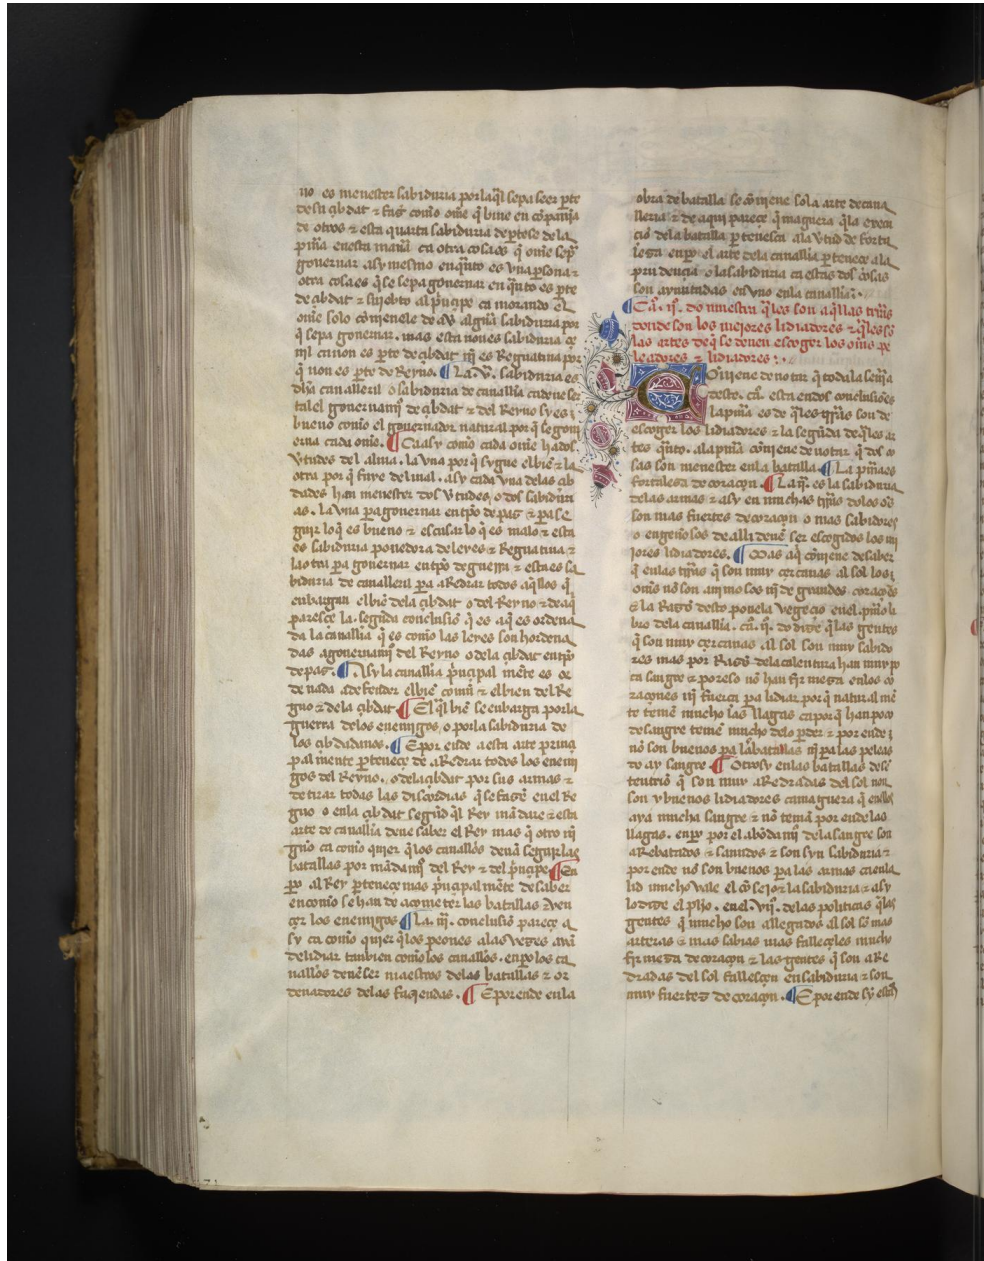 no es menester sabiduria por la q̃l sepa seer p̱te
de su çibdat ⁊ fué como om̃e q̃ biue en cōpañia
de otros ⁊ esta quarta sabiduria de p̱tese de la
p̃ma en esta man̄a ca otra cosa es q̃ om̃e sep̃
gouernar asy mesmo en q̃nto es vna p̱sona ⁊
otra cosa es q̃ se sepa gouernar en q̃nto es p̱te
de çibdat ⁊ subjebto al p̃nçipe ca morando el
om̃e solo cōmenele de av̄ algũa sabiduria por
q̃ sepa gouernar. mas esta no es sabiduria çe
uil ca non es p̱te de çibdat nj̄ es Regnatiua por
q̃ non es p̱te de Reyno. ¶ La .v̄. sabiduria es
dh̃a caualleril o sabiduria de caualłia ca deue ser
tal el gouernami̊ de çibdat ⁊ del Reyno sy es
bueno como el gouernador natural por q̃ se gou
ierna cada om̃e. ¶ Ca asy como cada om̃e ha dos
v̄tudes del alma. la vna por q̃ sygue el bien̄ ⁊ la
otra por q̃ fuye del mal. asy cada vna de las çib
dades han menester dos v̄tudes, o dos sabiduri
as. la vna pa gouernar en tp̃o de paz ⁊ pa se
guir lo q̃ es bueno ⁊ escusar lo q̃ es malo ⁊ esta
es sabiduria ponedora de leyes ⁊ Regnatiua ⁊
la otra pa gouernar en tp̃o de gue͞rra ⁊ esta es sa
biduria de caualleria pa aRedrar todos aq̃llos q̃
enbargan el bien̄ de la çibdat o del Reyno ⁊ de aq̃
paresçe la .segũda conclusiō q̃ es aq̃ es ordena
da la caualłia q̃ es como las leyes son hordena
das a gouernami̊ del Reyno o de la çibdat en tp̃o
de paz. ¶ Asy la caualłia p̃nçipal mēte es or
denada a defender el bien̄ comũ ⁊ el bien del Re
gno ⁊ de la çibdat ¶ El q̃l bien̄ se enbarga por la
guerra de los enemigos, o por la sabiduria de
los çibdadanos. ¶ E por ende a esta arte prinçi
pal mente p̱teneçe de aRedrar todos los enemi
gos del Reyno, o de la çibdat por sus armas ⁊
de tirar todas las discordias q̃ se fazē en el Re
gno o en la çibdat segũd q̃ el Rey mādare ⁊ esta
arte de caualłia deue saber el Rey mas q̃ otro ni
gũo ca como quier q̃ los cauallōs deuā seguir las
batallas por mādami̊ del Rey ⁊ del p̃nçipe ¶ En
po al Rey p̱teneçe mas p̃nçipal mēte de saber
en como se han de acometer las batallas ⁊ ven
çer los enemigos ¶ La .iij̄. conclusiō pareçe a
sy ca como quier q̃ los peones a las vezes ayā
de lidiar tanbien como los cauallōs. enpo los ca
uallōs deuē ser maestros de las batallas ⁊ or
denadores de las faziendas. ¶ E por ende en la
obra de batalla se cōtiene sola arte de caua
lleria ⁊ de aqui pareçe q̃ maguera q̃ la execu
ciō de la batalla p̱tenesca a la v̄tud de forta
leza enpo el arte de la caualłia p̱teneçe a la
prudençia o la sabiduria ca estas dos cosas
son ayuntadas en vno en la caualłia.
¶ Ca̅. ij̊. do muestra q̃les son aq̃llas t̃r̃as
donde son los mejores lidiadores ⁊ q̃les sō
las artes de q̃ se deuen escoger los om̄s pe
leadores ⁊ lidiadores :.
COuiene de notar q̃ toda la sen̄a
deste .ca̅. esta en dos conclusiōes
la p̃ma es de q̃les t̃r̃as son de
escoger los lidiadores ⁊ la segũda de q̃les ar
tes q̃nto. a la p̃ma cōuiene de notar q̃ dos co
sas son menester en la batalla ¶ La p̃ma es
fortaleza de coraçon. ¶ La .ij̊. es la sabiduria
de las armas ⁊ asy en muchas t̃r̃as do los om̄s
son mas fuertes de coraçon o mas sabidores
o engeñosos de alli deuē ser escogidos los me
jores lidiadores. ¶ Mas aq̃ cōuiene de saber
q̃ en las t̃r̃as q̃ son muy çercanas al sol los
om̄s nō son animosos nj̄ de grandes coraçōes
⁊ la Razō desto pone la vegeçio en el .p̃mo li
bro de la caualłia. ca̅. ij̊. do dize q̃ las gentes
q̃ son muy çercanas al sol son muy sabido
res mas por Razō de la calentura han muy po
ca sangre ⁊ por eso nō han firmeza en los co
raçones nj̄ fuerça pa lidiar por q̃ natural mē
te temē mucho las llagas ca por q̃ han poca
de sangre temē mucho de lo p̱der ⁊ por ende
nō son buenos pa la batallas nj̄ pa las peleas
do ay sangre ¶ Otrosy en las batallas de sē
tentriō q̃ son muy aRedradas del sol non
son y buenos lidiadores ca maguera q̃ en ellos
aya mucha sangre ⁊ nō temā por ende las
llagas. enpo por el abōdami̊ de la sangre son
aRebatados ⁊ sanudos ⁊ son syn sabiduria ⁊
por ende nō son buenos pa las armas ca en la
lid mucho vale el cōsejo ⁊ la sabiduria ⁊ asy
lo dize el pho. en el .vij̊. de las politicas q̃ las
gentes q̃ mucho son allegados al sol sō mas
arteras ⁊ mas sabias mas falleçeles mucho
firmeza de coraçon ⁊ las gentes q̃ son aRe
dradas del sol fallesçen en sabiduria ⁊ son
muy fuertes de coraçon. ¶ E por ende sy estas